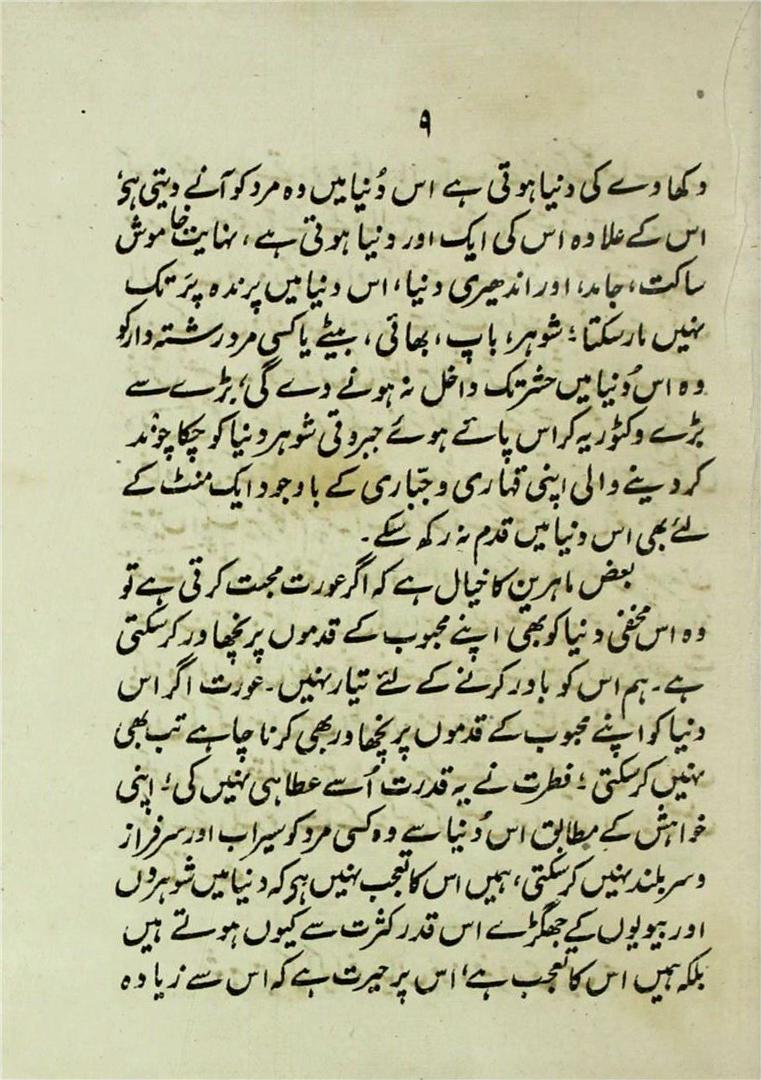 ۹
دکھاوے کی دنیا ہوتی ہے اس دُنیا میں وہ مرد کو آنے دیتی ہے،
اس کے علاوہ اس کی ایک اور دنیا ہوتی ہے، نہایت خاموش
ساکت، جامد، اور اندھیری دنیا، اس دنیا میں پرندہ پَر تک
نہیں مار سکتا؛ شوہر، باپ، بھائی، بیٹے یا کسی مرد رشتہ دار کو
وہ اس دُنیا میں حشر تک داخل نہ ہونے دے گی، بڑے سے
بڑے وکٹوریہ کراس پائے ہوئے جبروتی شوہر دنیا کو چکا چوند
کر دینے والی اپنی قہاری و جبّاری کے باوجود ایک منٹ کے
لئے بھی اس دنیا میں قدم نہ رکھ سکے۔
بعض ماہرین کا خیال ہے کہ اگر عورت محبت کرتی ہے تو
وہ اس مخفی دنیا کو بھی اپنے محبوب کے قدموں پر نچھاور کر سکتی
ہے۔ ہم اس کو باور کرنے کے لئے تیار نہیں۔ عورت اگر اس
دنیا کو اپنے محبوب کے قدموں پر نچھاور بھی کرنا چاہے تب بھی
نہیں کر سکتی؛ فطرت نے یہ قدرت اُسے عطا ہی نہیں کی؛ اپنی
خواہش کے مطابق اس دُنیا سے وہ کسی مرد کو سیراب اور سرفراز
و سربلند نہیں کر سکتی، ہمیں اس کا تعجب نہیں ہے کہ دنیا میں شوہروں
اور بیویوں کے جھگڑے اس قدر کثرت سے کیوں ہوتے ہیں
بلکہ ہمیں اس کا تعجب ہے، اس پر حیرت ہے کہ اس سے زیادہ